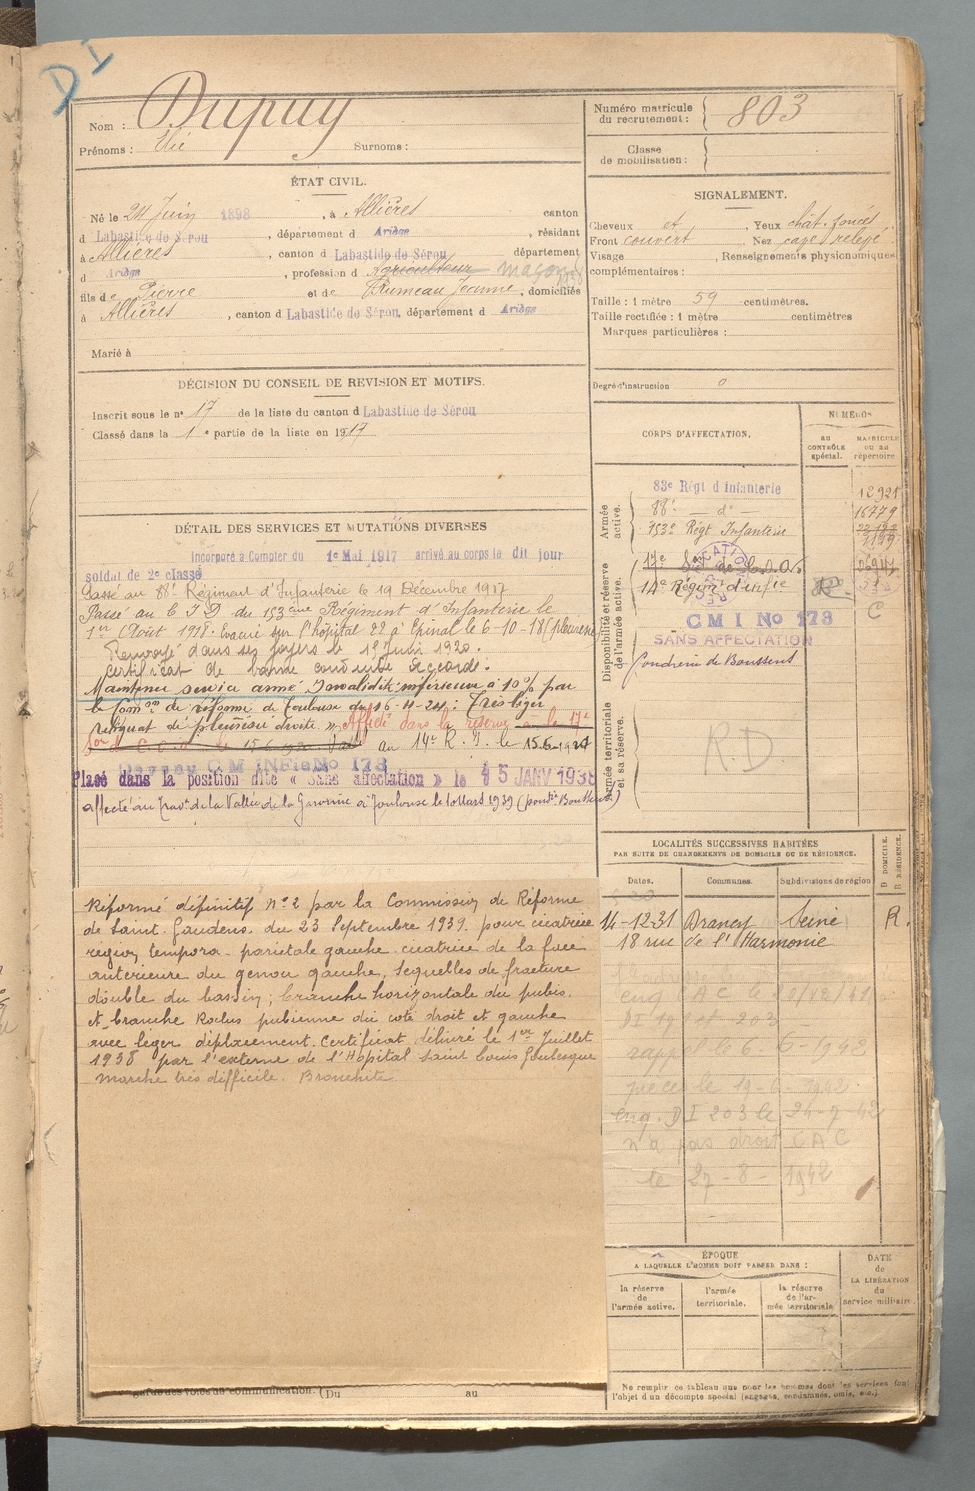 D I
Nom : Dupuy
Prénoms : Elie Surnoms :
Numéro matricule du recrutement : 803
Classe de mobilisation :
ÉTAT CIVIL.
Né le 24 Juin 1898, à Allières canton
d Labastide de Sérou, département d Ariège, résidant
à Allières, canton d Labastide de Sérou département
d Ariège, profession d Agriculteur maçon
fils de Pierre et de Rumeau Jeanne, domiciliés
à Allières, canton d Labastide de Sérou, département d Ariège
Marié à
SIGNALEMENT.
Cheveux et, Yeux chât. foncé
Front couvert, Nez cave relevé
Visage, Renseignements physionomiques
complémentaires :
Taille : 1 mètre 59 centimètres.
Taille rectifiée : 1 mètre centimètres
Marques particulières :
Degré d'instruction 0
DÉCISION DU CONSEIL DE REVISION ET MOTIFS.
Inscrit sous le n° 17 de la liste du canton d Labastide de Sérou
Classé dans la 1e partie de la liste en 1917
DÉTAIL DES SERVICES ET MUTATIONS DIVERSES
Incorporé à Compter du 1e Mai 1917 arrivé au corps le dit jour
soldat de 2e classe
Passé au 88e Régiment d'Infanterie le 19 Décembre 1917
Passé au C I D du 153ème Régiment d'Infanterie le
1er Août 1918. Evacué sur l'hôpital 22 à Epinal le 6-10-18 (pleurésie)
Renvoyé dans ses foyers le 15 Juin 1920.
Certificat de bonne conduite accordé.
Maintenu service armé Invalidité inférieure à 10% par
la Comon de réforme de Toulouse du 26-11-24 : Très léger
reliquat de pleurésie droite » Affecté dans la réserve à le 17e
au 14e R. I. le 15-6-1924
C M INFie No 173
Placé dans la position dite « Sans affectation » le 15 JANV 1938
affecté au Trav. de la Vallée de la Garonne à Toulouse le 1 Mars 1939 (poudrie Boussens)
Réformé définitif N° 2 par la Commission de Réforme
de Saint. Gaudens. du 23 Septembre 1939. pour cicatrice
région temporo-pariétale gauche. cicatrice de la face
antérieure du genou gauche, séquelles de fracture
double du bassin; branche horizontale du pubis.
et branche Ischio pubienne du coté droit et gauche
avec léger déplacement. Certificat délivré le 1er Juillet
1938 par l'externe de l'Hôpital Saint Louis
marche très difficile. Bronchite.
Garde des voies de communication. (Du au
CORPS D'AFFECTATION.
NUMÉROS
au CONTRÔLE spécial.
MATRICULE ou au répertoire
Armée active.
83e Régt d'Infanterie 12921
88e — do — 16779
153e Régt Infanterie 1199
Disponibilité et réserve de l'armée active.
14e Région d'infie
C M I No 173 C
SANS AFFECTATION
Poudrerie de Boussens
Armée territoriale et sa réserve.
R.D.
LOCALITÉS SUCCESSIVES HABITÉES
PAR SUITE DE CHANGEMENTS DE DOMICILE OU DE RÉSIDENCE.
Dates. Communes. Subdivisions de région D DOMICILE. R RÉSIDENCE.
14-12-31 Drancy Seine R.
18 rue de l'Harmonie
enq C A C le 10/12/41
DI 19 et 203
rappel le 6-6-1942
pièces le 19-6-1942.
enq. D I 203 le 24-7-42
n'a pas droit C A C
le 27-8-1942
ÉPOQUE
A LAQUELLE L'HOMME DOIT PASSER DANS :
la réserve de l'armée active.
l'armée territoriale.
la réserve de l'armée territoriale
DATE de LA LIBÉRATION du service militaire.
Ne remplir ce tableau que pour les hommes dont les services font
l'objet d'un décompte spécial (engagés, condamnés, omis, etc.)